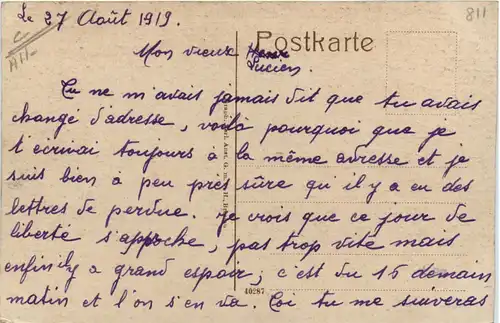 Le 27 Août 1919.
811
C
A11-
Postkarte
Mon vieux Henri
Lucien.
Tu ne m'avais jamais dit que tu avais
changé d'adresse, voila pourquoi que je
t'écrivai toujours à la même adresse et je
suis bien à peu près sûre qu'il y a eu des
lettres de perdue. Je crois que ce jour de
liberté s'approche, pas trop vite mais
enfin il y a grand espoir; c'est du 15 demain
matin et l'on s'en va. Toi tu me suiveras
40287